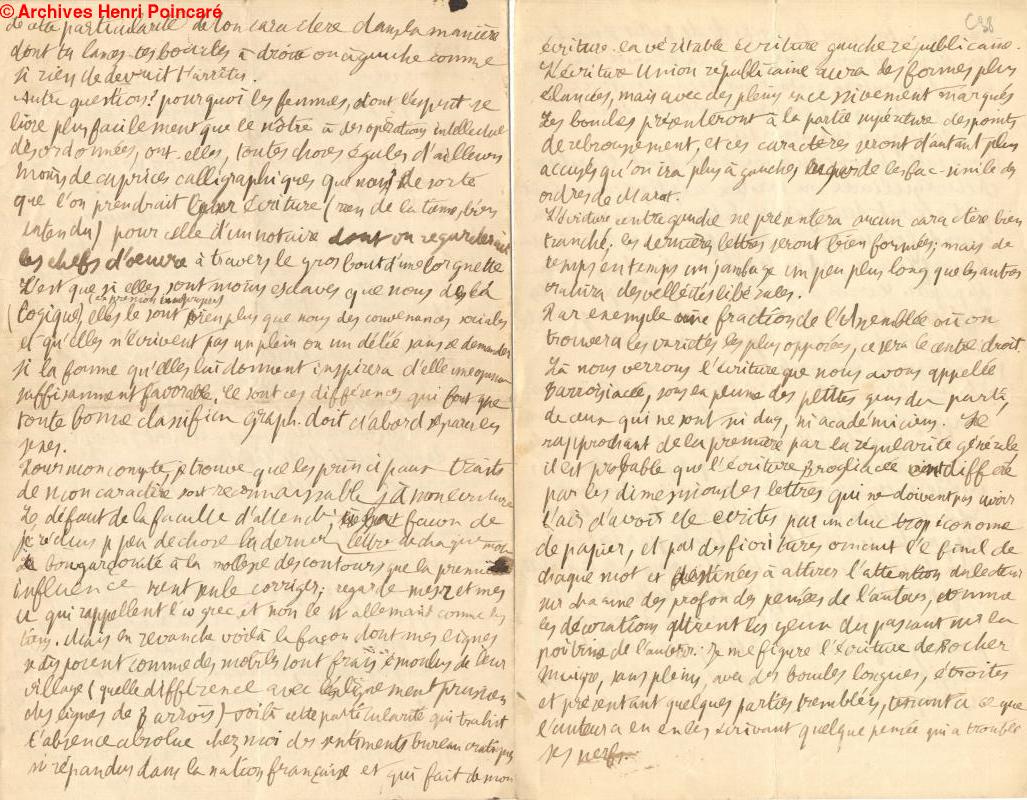 © Archives Henri Poincaré
de cette particularité de ton caractère dans la manière
dont tu lances tes boucles à droite ou à gauche comme
si rien ne devait t'arrêter.
Autre question? pourquoi les femmes, dont l'esprit se
livre plus facilement que le nôtre à des opérations intellectuelles
désordonnées, ont-elles, toutes choses égales d'ailleurs
moins de caprices calligraphiques que nous? de sorte
que l'on prendrait leur écriture (rien de la tienne, bien
entendu) pour celle d'un notaire dont on regarderait
les chefs d'oeuvre à travers le gros bout d'une lorgnette
C'est que si elles sont moins esclaves que nous de la
logique, (expression impropre) elles le sont bien plus que nous des convenances sociales
et qu'elles n'écrivent pas un plein ou un délié sans se demander
si la forme qu'elles lui donnent inspirera d'elle une opinion
suffisamment favorable. Ce sont ces différences qui font que
toute bonne classificon graph. doit d'abord séparer les
sexes.
Pour mon compte, je trouve que les principaux traits
de mon caractère sont reconnaissables à mon écriture
Le défaut de la faculté d'attendre façon de
je réduis à peu de chose la dernière lettre de chaque mot
bougardouité à la mollesse des contours que la première
influence vient seule corriger; regarde mes r et mes
u qui rappellent l'υ grec et non le n allemand comme les
tiens. Mais en revanche voilà la façon dont mes lignes
se disposent comme des mobiles tout frais émoulus de leur
village (quelle différence avec l'alignement prussien
des lignes de Barrois) voilà cette particularité qui trahit
l'absence absolue chez moi des sentiments bureaucratiques
si répandus dans la nation française et qui fait de mon
écriture la véritable écriture gauche républicaine.
L'écriture Union républicaine aura des formes plus
élancées, mais avec des pleins successivement marqués
Les boucles présenteront à la partie supérieure des points
de rebroussement, et ces caractères seront d'autant plus
accusés qu'on ira plus à gauche; regarde les fac-simile des
ordres de Marat.
L'écriture centre gauche ne présentera aucun caractère bien
tranché; les dernières lettres seront bien formées; mais de
temps en temps un jambage un peu plus long que les autres
trahira des velléités libérales.
Par exemple une fraction de l'Assemblée où on
trouvera les variétés les plus opposées, ce sera le centre droit.
Là nous verrons l'écriture que nous avons appellé
Barroisiacée, sous la plume des petites gens du parti,
de ceux qui ne sont ni ducs, ni académiciens. Se
rapprochant de la première par la régularité générale,
il est probable que l'écriture Brogliacée en diffère
par les dimensions des lettres qui ne doivent pas avoir
l'air d'avoir été écrites par un duc trop économe
de papier, et par des fioritures ornant le final de
chaque mot et destinées à attirer l'attention du lecteur
sur chacune des profondes pensées de l'auteur, comme
les décorations attirent les yeux du passant sur la
poitrine de l'auteur. Je me figure l'écriture de Rocher
maigre, sans pleins, avec des boucles longues, étroites
et présentant quelques parties tremblées, tenant à ce que
l'auteur a eu en les écrivant quelque pensée qui a troublé
ses nerfs.